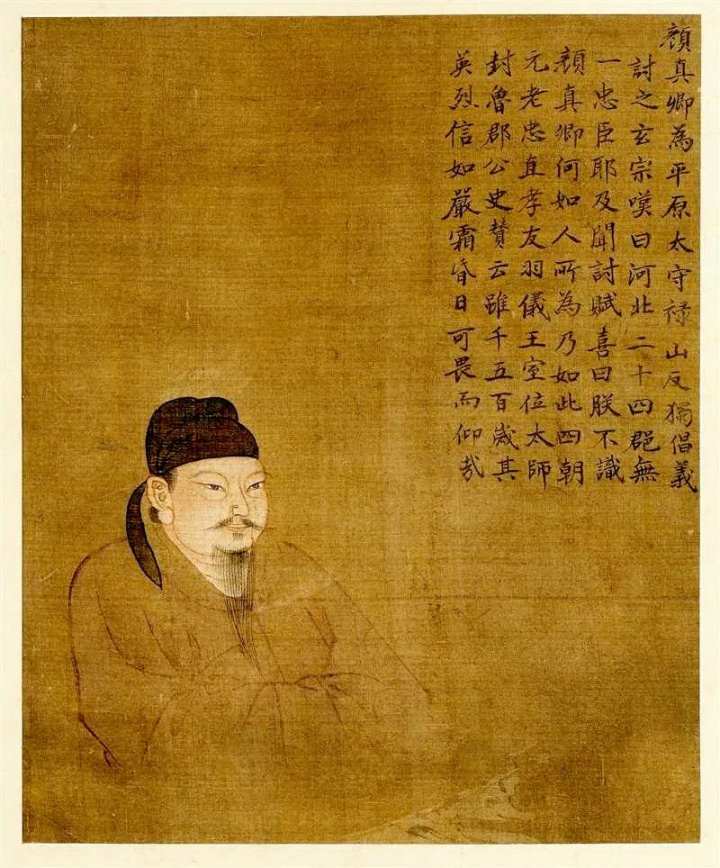 顔真卿為平原太守禄山反獨倡義
討之玄宗嘆曰河北二十四郡無
一忠臣耶及聞討賊喜曰朕不識
顔真卿何如人所為乃如此四朝
元老忠直孝友羽儀王室位太師
封魯郡公史贊云雖千五百歲其
英烈信如嚴霜昏日可畏而仰哉